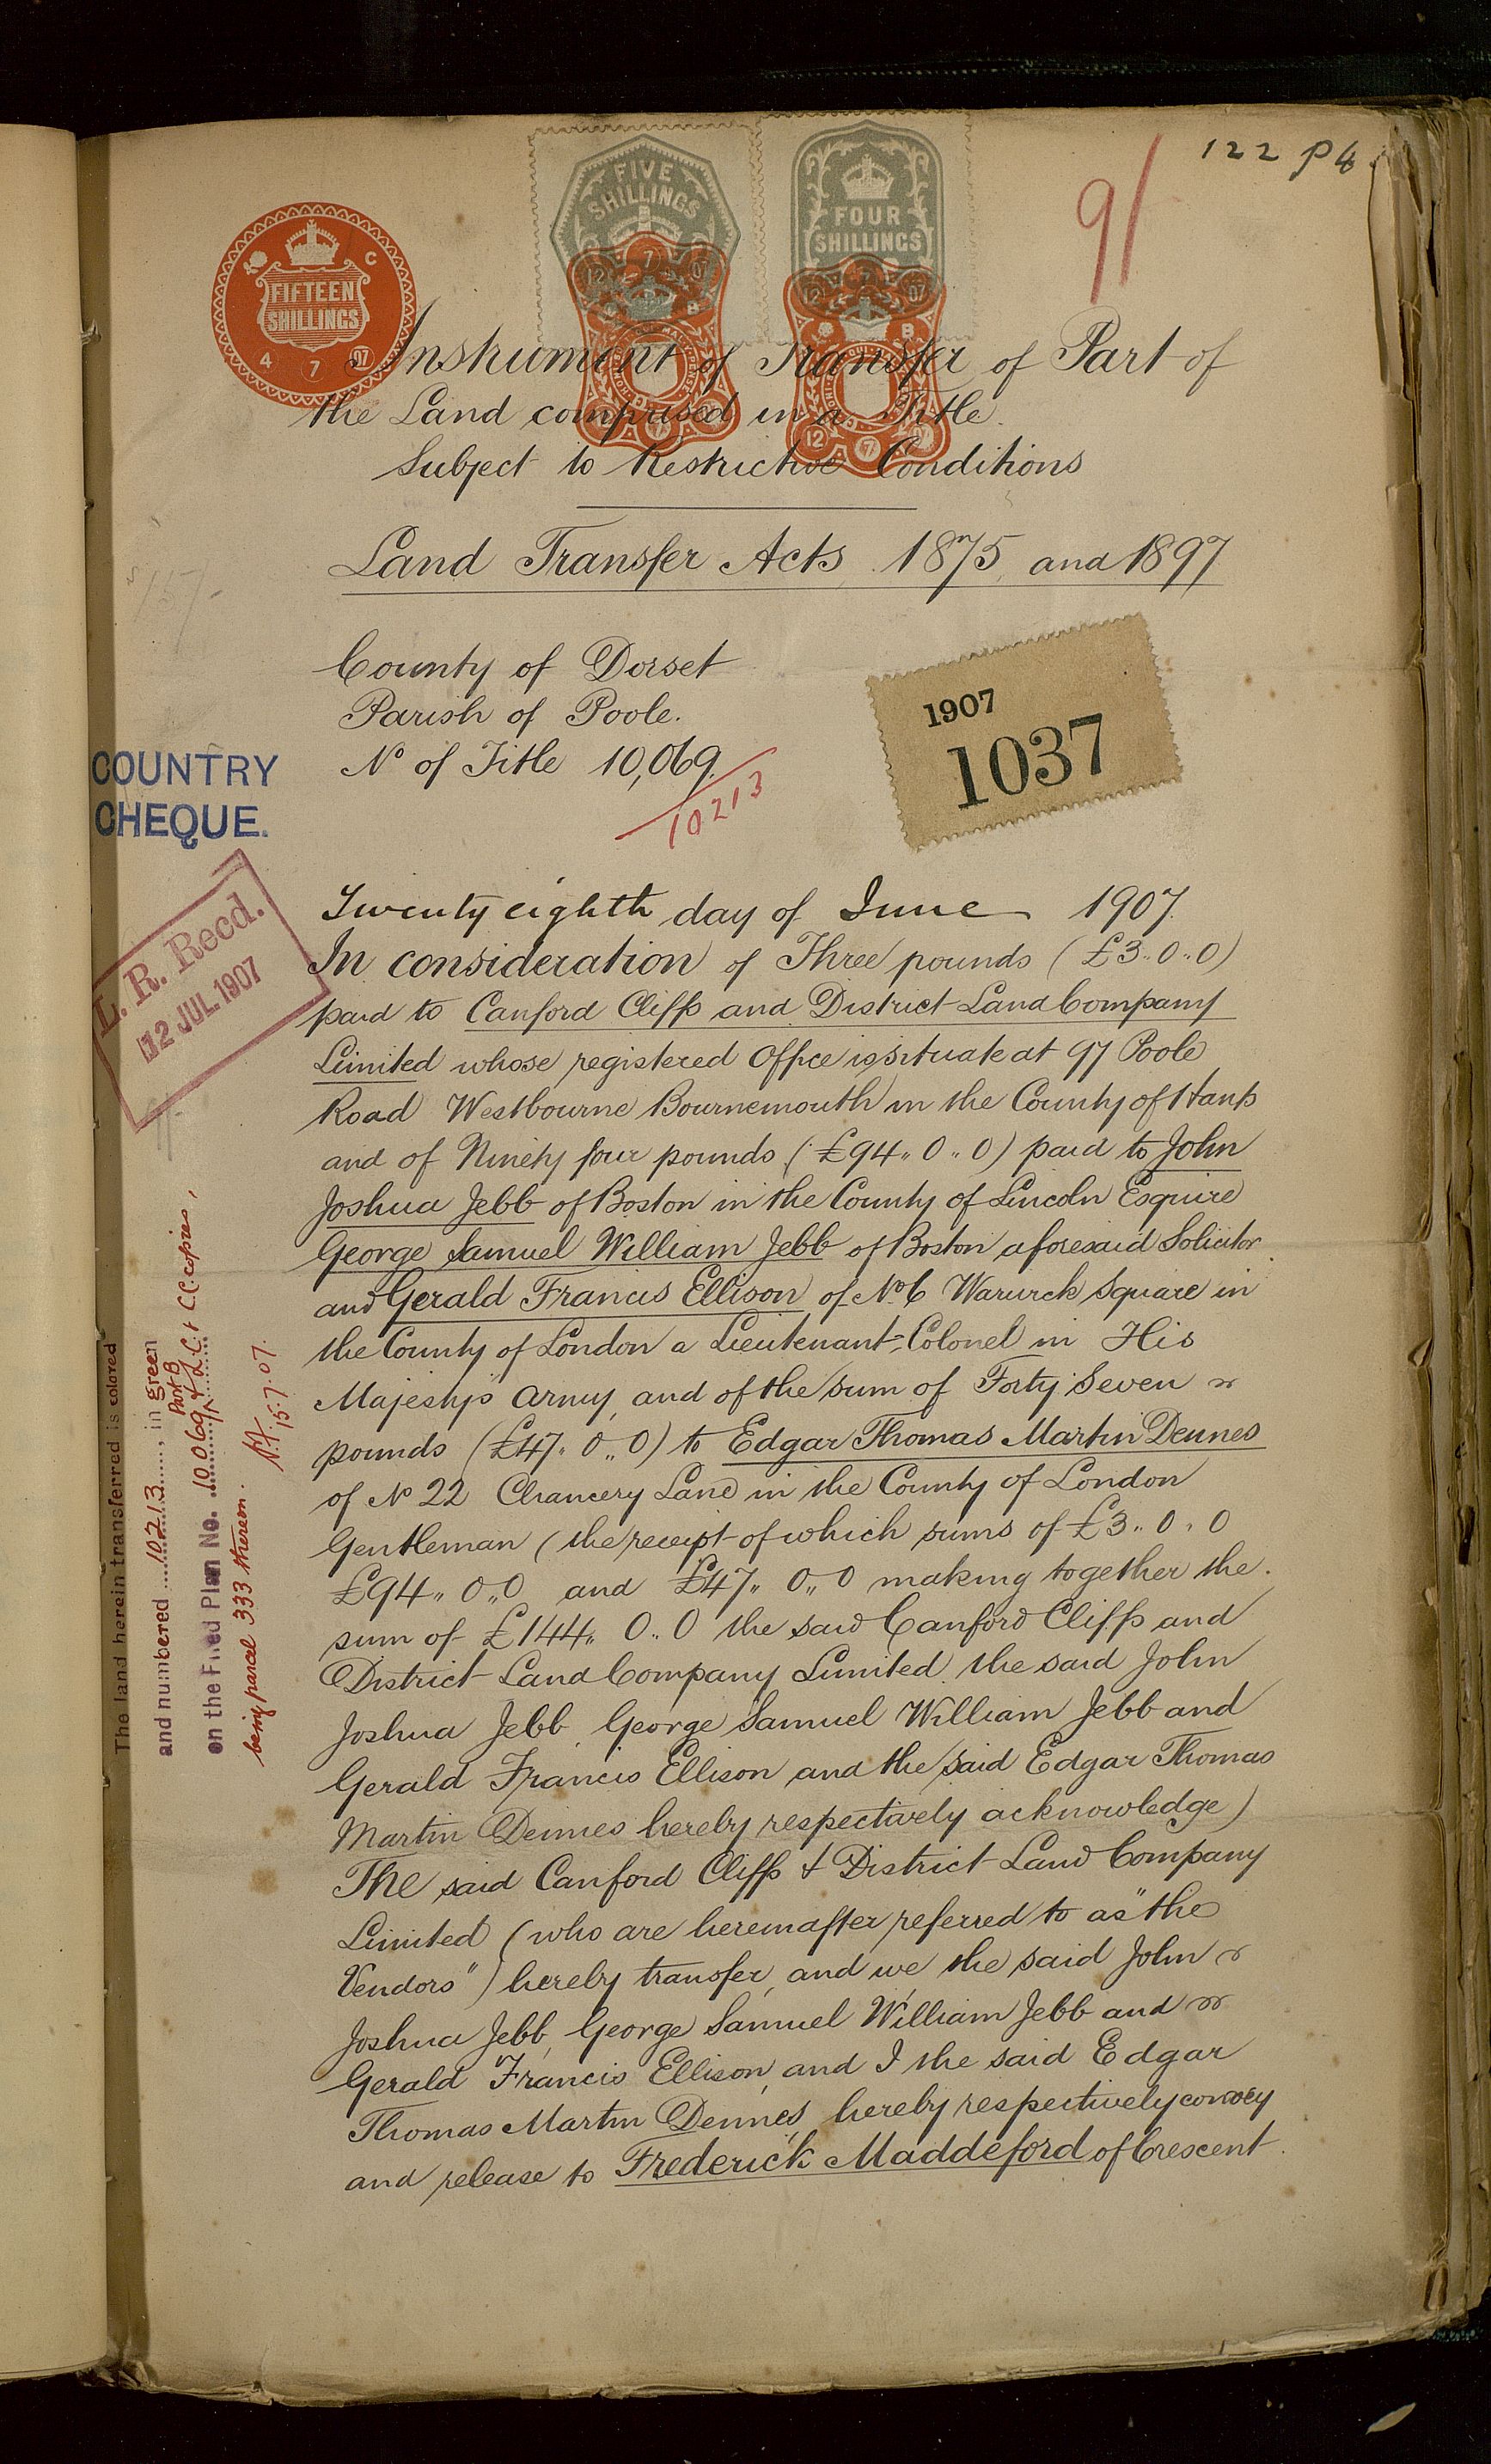 122 P4
9/
FIVE
SHILLINGS
FOUR
SHILLINGS
FIFTEEN
SHILLINGS
4 7 07
12 7 07
12 7 07
Instrument of Transfer of Part of
the Land comprised in a Title.
Subject to Restrictive Conditions
Land Transfer Acts, 1875, and 1897
County of Dorset
Parish of Poole.
No of Title 10,069.
10213
1907
1037
COUNTRY
CHEQUE.
L. R. Recd.
12 JUL 1907
Twenty eighth day of June 1907.
In consideration of Three pounds (£3..0..0)
paid to Canford Cliffs and District Land Company
Limited whose registered Office is situate at 97 Poole
Road Westbourne Bournemouth in the County of Hants
and of Ninety four pounds (£94..0..0) paid to John
Joshua Jebb of Boston in the County of Lincoln Esquire
George Samuel William Jebb of Boston aforesaid Solicitor
and Gerald Francis Ellison of No. 6 Warwick Square in
the County of London a Lieutenant-Colonel in His
Majesty's Army, and of the sum of Forty Seven
pounds (£47..0..0) to Edgar Thomas Martin Dennes
of No 22 Chancery Lane in the County of London
Gentleman (the receipt of which sums of £3..0..0
£94..0..0 and £47..0..0 making together the
sum of £144..0..0 the said Canford Cliffs and
District Land Company Limited the said John
Joshua Jebb, George Samuel William Jebb and
Gerald Francis Ellison and the said Edgar Thomas
Martin Dennes hereby respectively acknowledge)
The said Canford Cliffs & District Land Company
Limited (who are hereinafter referred to as "the
Vendors") hereby transfer, and we the said John
Joshua Jebb, George Samuel William Jebb and
Gerald Francis Ellison, and I the said Edgar
Thomas Martin Dennes, hereby respectively convey
and release to Frederick Maddeford of Crescent
The land herein transferred is colored
and numbered 10213, in green
Part B
on the Filed Plan No. 10069 & L.C. & C.C. copies,
being parcel 333 thereon.
15.7.07.